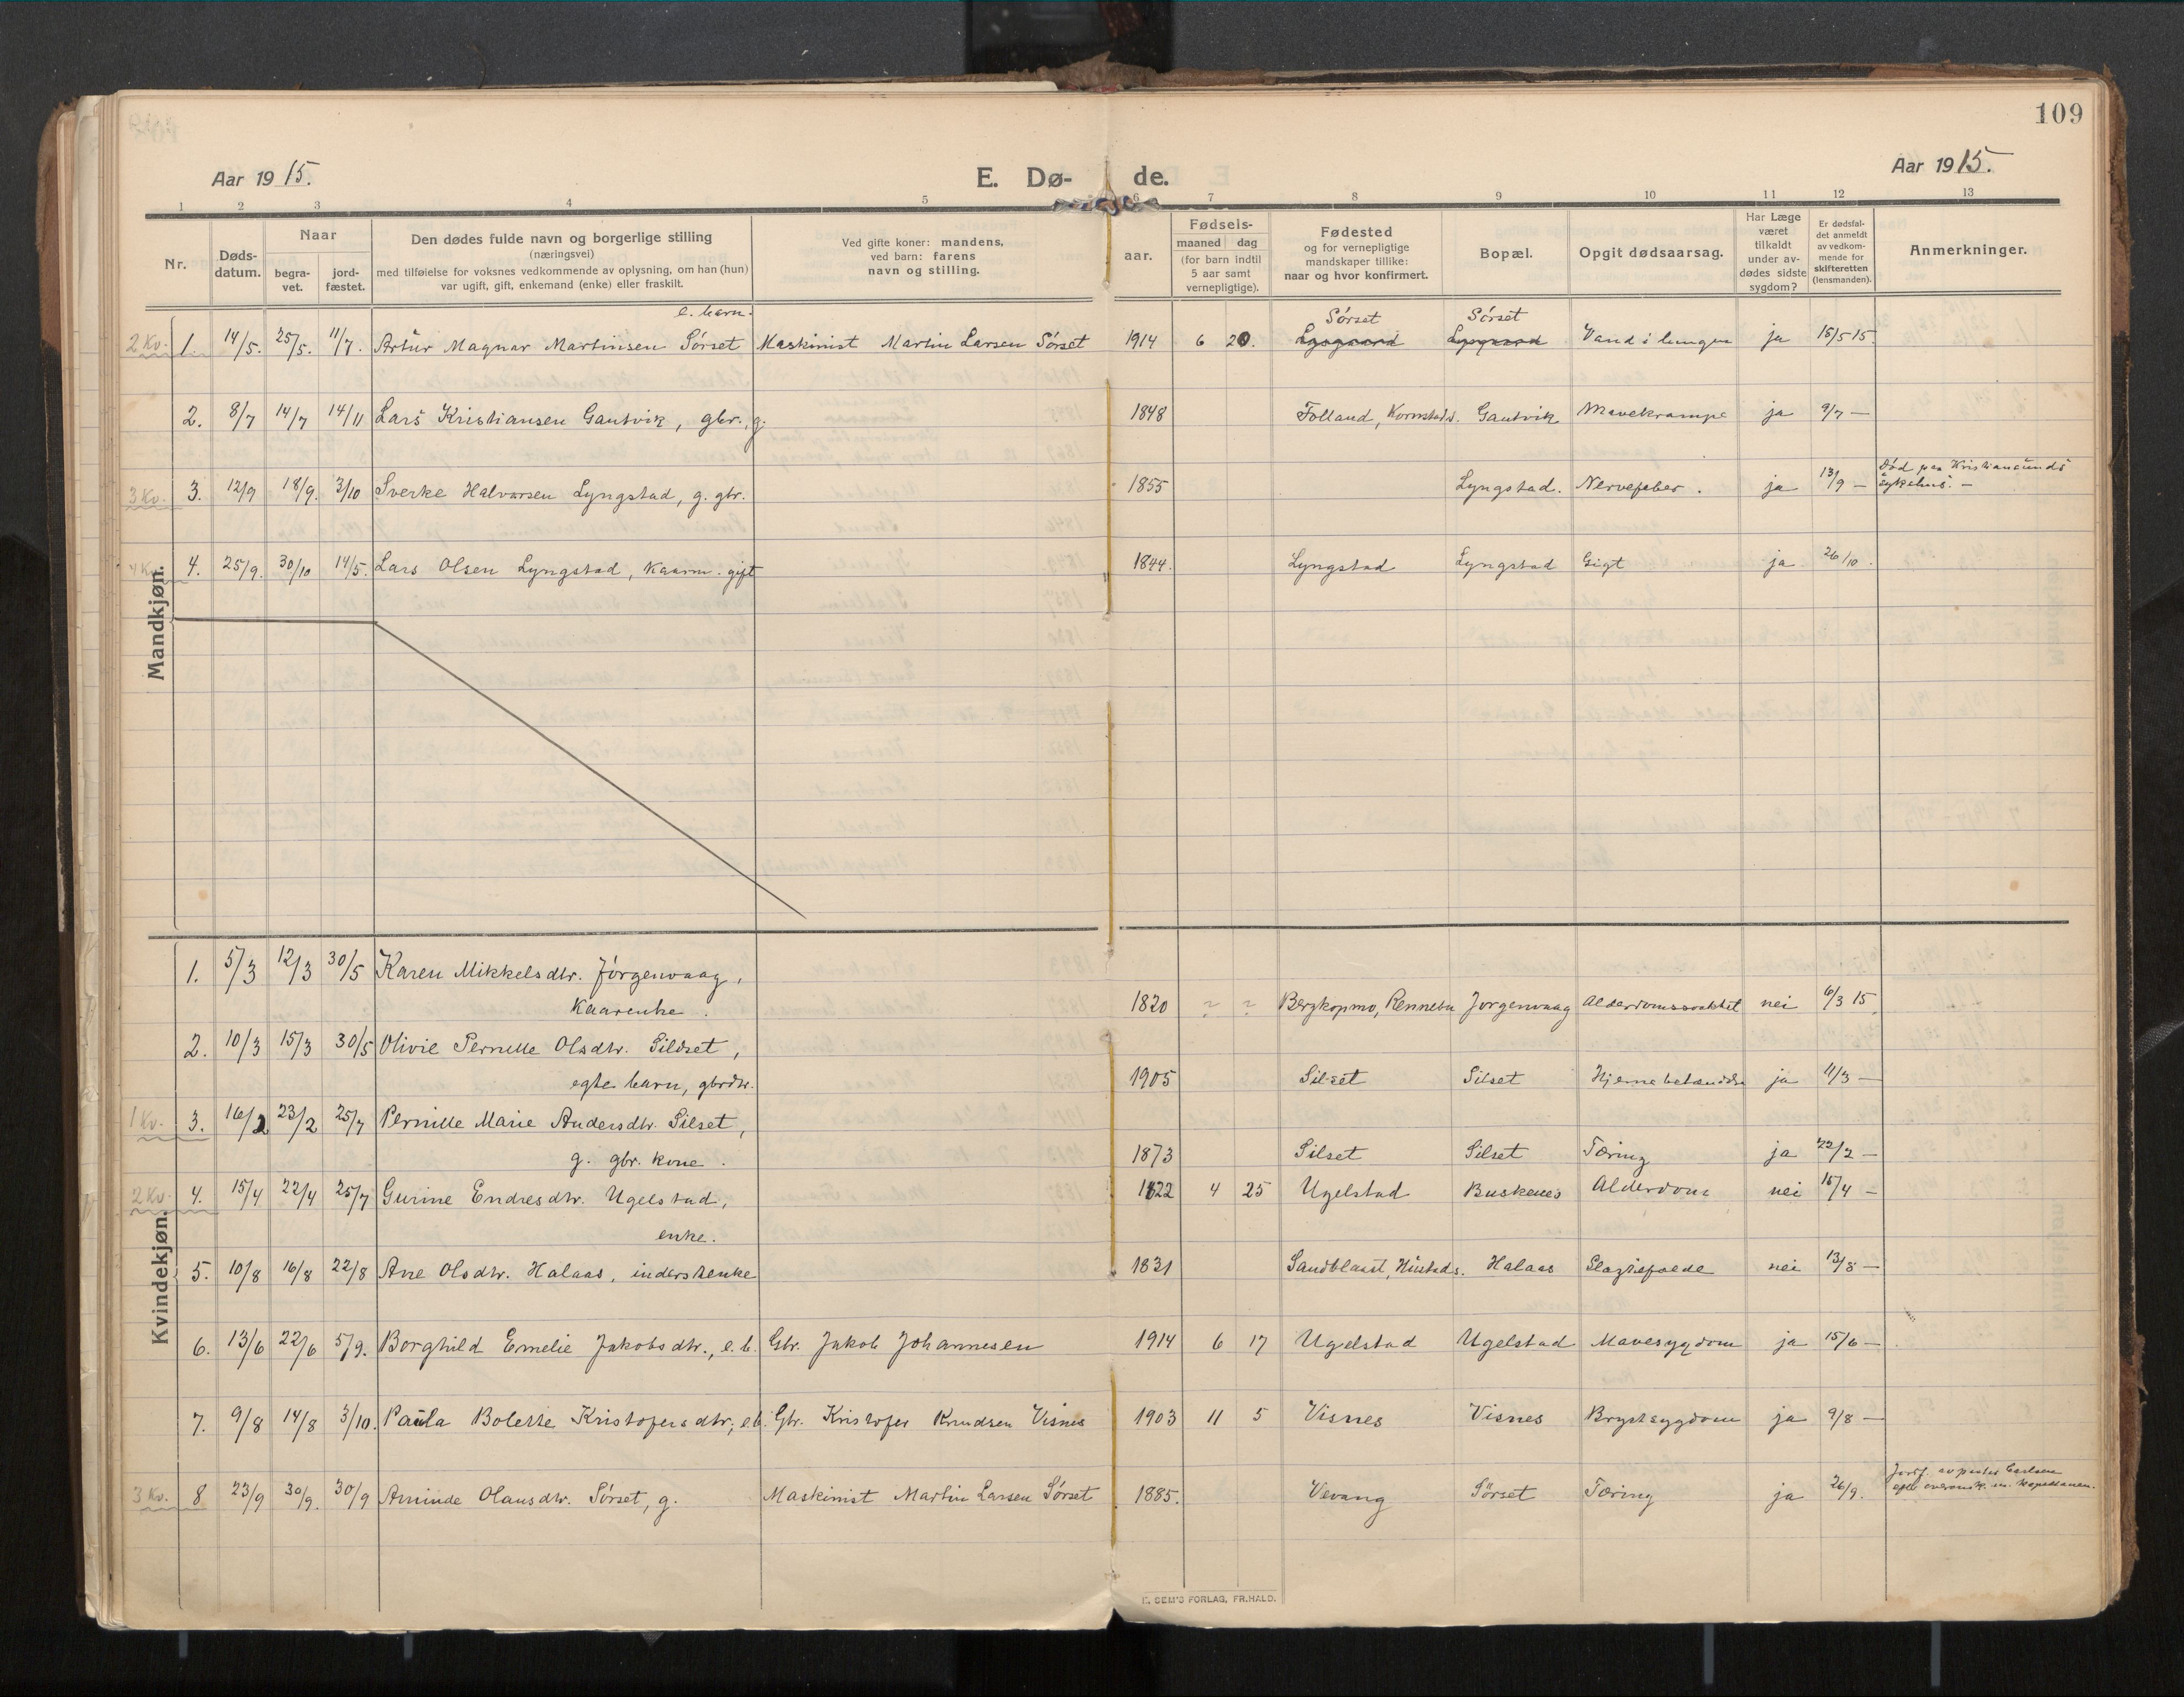 109
Aar 1915.
E. Dø- de.
Aar 1915.
1 2 3 4 5 6 7 8 9 10 11 12 13
Nr.
Døds-datum.
Naar
begra-vet.
jord-fæstet.
Den dødes fulde navn og borgerlige stilling
(næringsvei)
med tilføielse for voksnes vedkommende av oplysning, om han (hun)
var ugift, gift, enkemand (enke) eller fraskilt.
Ved gifte koner: mandens,
ved barn: farens
navn og stilling.
Fødsels-
aar.
maaned dag
(for barn indtil
5 aar samt
vernepligtige).
Fødested
og for vernepligtige
mandskaper tillike:
naar og hvor konfirmert.
Bopæl.
Opgit dødsaarsag.
Har Læge
været
tilkaldt
under av-
dødes sidste
sygdom?
Er dødsfal-
det anmeldt
av vedkom-
mende for
skifteretten
(lensmanden).
Anmerkninger.
Mandkjøn.
e. barn. Sørset Sørset
2 Kv. 1. 14/5. 25/5. 11/7. Artur Magnar Martinsen Sørset Maskinist Martin Larsen Sørset 1914 6 20. Vand i lungen ja 15/5 15.
2. 8/7 14/7 14/11 Lars Kristiansen Gautvik, gbr., g. 1848 Folland, Kornstad s. Gautvik Mavekrampe ja 9/7 —
3 Kv. 3. 12/9 18/9. 3/10 Sverke Halvorsen Lyngstad, g. gbr. 1855 Lyngstad. Nervefeber. ja 13/9 — Død paa Kristiansunds
sykehus. —
4 Kv. 4. 25/9. 30/10 14/5. Lars Olsen Lyngstad, Kaarm. gift 1844. Lyngstad Lyngstad Gigt ja 26/10.
Kvindekjøn.
1. 5/3 12/3 30/5 Karen Mikkelsdtr. Jørgenvaag,
Kaarenke. 1820 ? ? Bergkopmo, Rennebu Jørgenvaag nei 6/3 15.
2. 10/3 15/3 30/5 Olivie Pernille Olsdtr. Silset,
egte barn, gbrdtr. 1905 Silset Silset Hjernebetændelse ja 11/3 —
1 Kv. 3. 16/2 23/2 25/7 Pernille Marie Andersdtr. Silset,
g. gbr. kone. 1873 Silset Silset Tæring ja 22/2 —
2 Kv. 4. 15/4 22/4 25/7 Gurine Endresdtr. Ugelstad, 1822 4 25 Ugelstad Buskenes Alderdom nei 15/4 —
enke.
5. 10/8 16/8 22/8 Ane Olsdtr. Halaas, inderstenke 1831 Sandblaast, Hustad s. Halaas Slagtilfælde nei 13/8 —
6. 13/6 22/6 5/9. Borghild Emelie Jakobsdtr., e. b. Gbr. Jakob Johannesen 1914 6 17 Ugelstad Ugelstad Mavesygdom ja 15/6 —
7. 9/8 14/8 3/10. Paula Bolette Kristofersdtr., e. b. Gbr. Kristofer Knudsen Visnes 1903 11 5 Visnes Visnes Brystsygdom ja 9/8 —
3 Kv. 8 23/9 30/9. 30/9 Aminde Olausdtr. Sørset, g. Maskinist Martin Larsen Sørset 1885. Vevang Sørset Tæring ja 26/9. Jordf. av pastor Carlsen
efter overensk. m. kapellanen.
E. SEM'S FORLAG, FR.HALD.